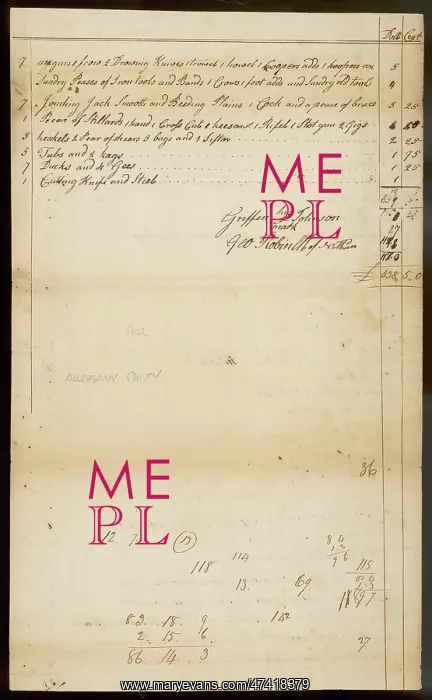 Doll Cest
7 augurs 1 frow 2 Drowing Knives 1 trowel 1 howel 1 Coopers adds 1 Koopers ax 5
Sundry Peases of Iron tools and Bands 1 Crow 1 foot adds and Sundry old tools 4
7 Jointing Jack Smooth and Beeding Plains 1 Cock and a peace of brace 3 25
1 Pear of Stillards 1 hand 1 Cross Cut 1 Rifel 1 Shot gun 2 Gigs 6 50
3 heakels 2 Pear of shears 3 bags and 1 Sifter 2 25
5 Tubs and 2 kags 1 75
7 Ducks and 4 Gees 1 25
1 Cutting Knife and Steel 1
Griffin his Johnson
mark
Geo Robinett of Nathan
438 50
1802
Allegany County
36
12 7 17
84
12
96
118 114
115
13 69
83 18 9
2 15 6
86 14 3
112
27
ME
PL
ME
PL
www.maryevans.com/47418379